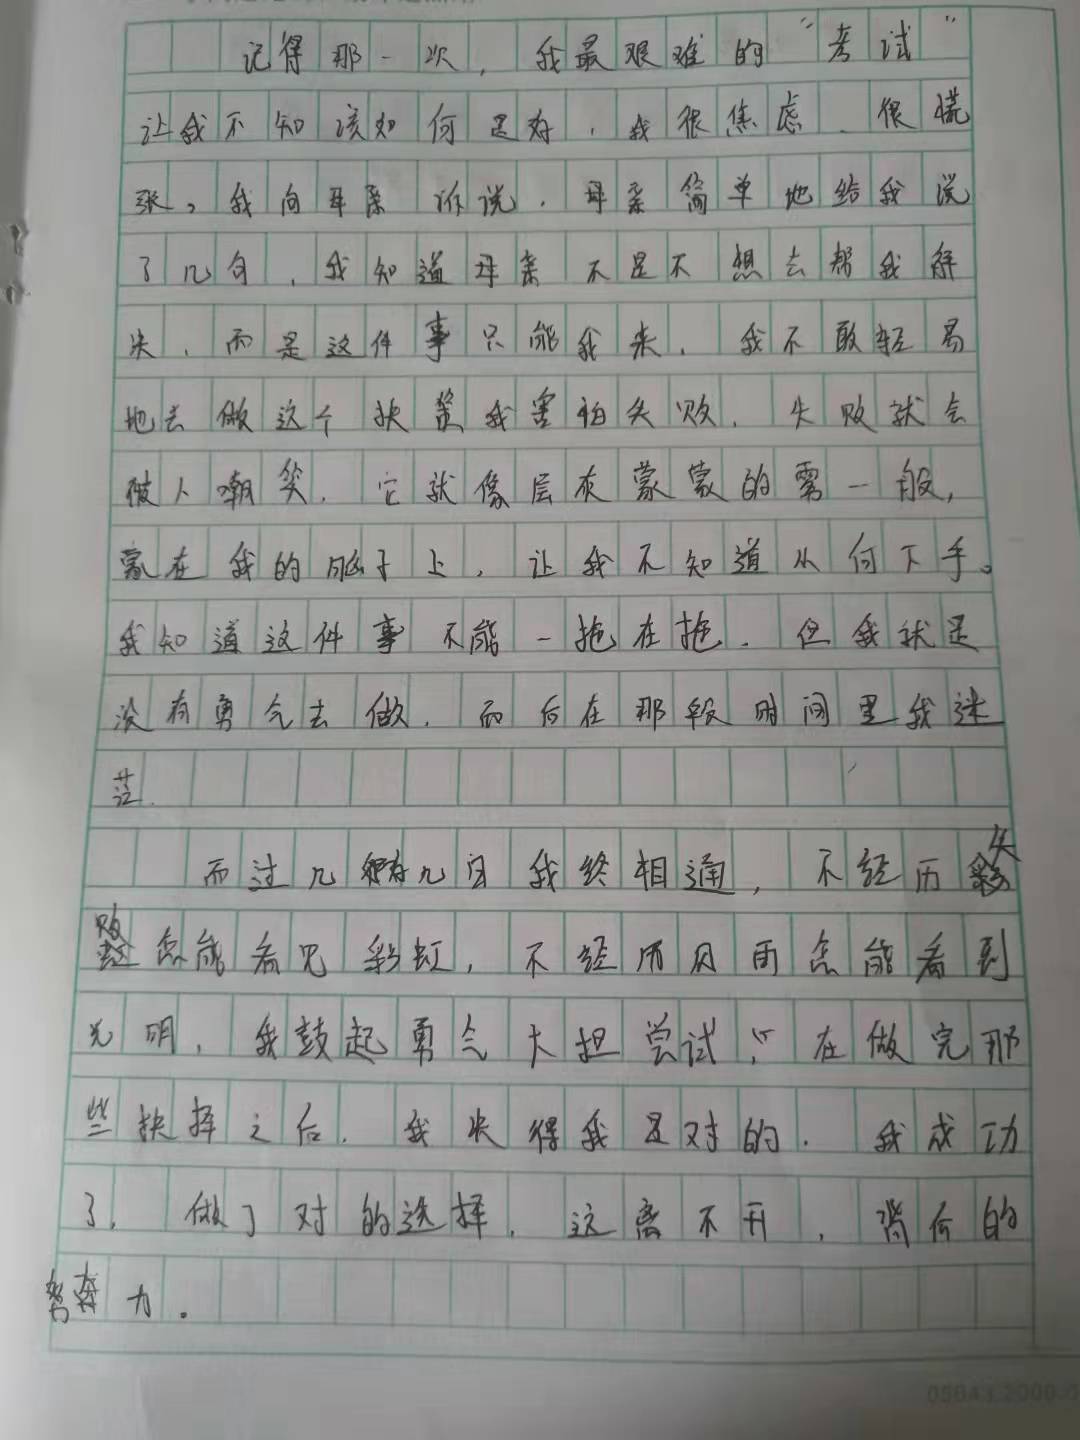 记得那一次，我最艰难的“考试”
让我不知该如何是好，我很焦虑、很慌
张，我向母亲诉说，母亲简单地给我说
了几句，我知道母亲不是不想去帮我解
决，而是这件事只能我来，我不敢轻易
地去做这个抉择我害怕失败，失败就会
被人嘲笑，它就像层灰蒙蒙的雾一般，
蒙在我的脑子上，让我不知道从何下手。
我知道这件事不能一拖在拖，但我就是
没有勇气去做，而后在那段时间里我迷
茫.
而过几 几日我终相通，不经历失
败怎能看见彩虹，不经历风雨怎能看到
光明，我鼓起勇气大担尝试，在做完那
些抉择之后，我决得我是对的，我成功
了，做了对的选择，这离不开，背后的
努力。